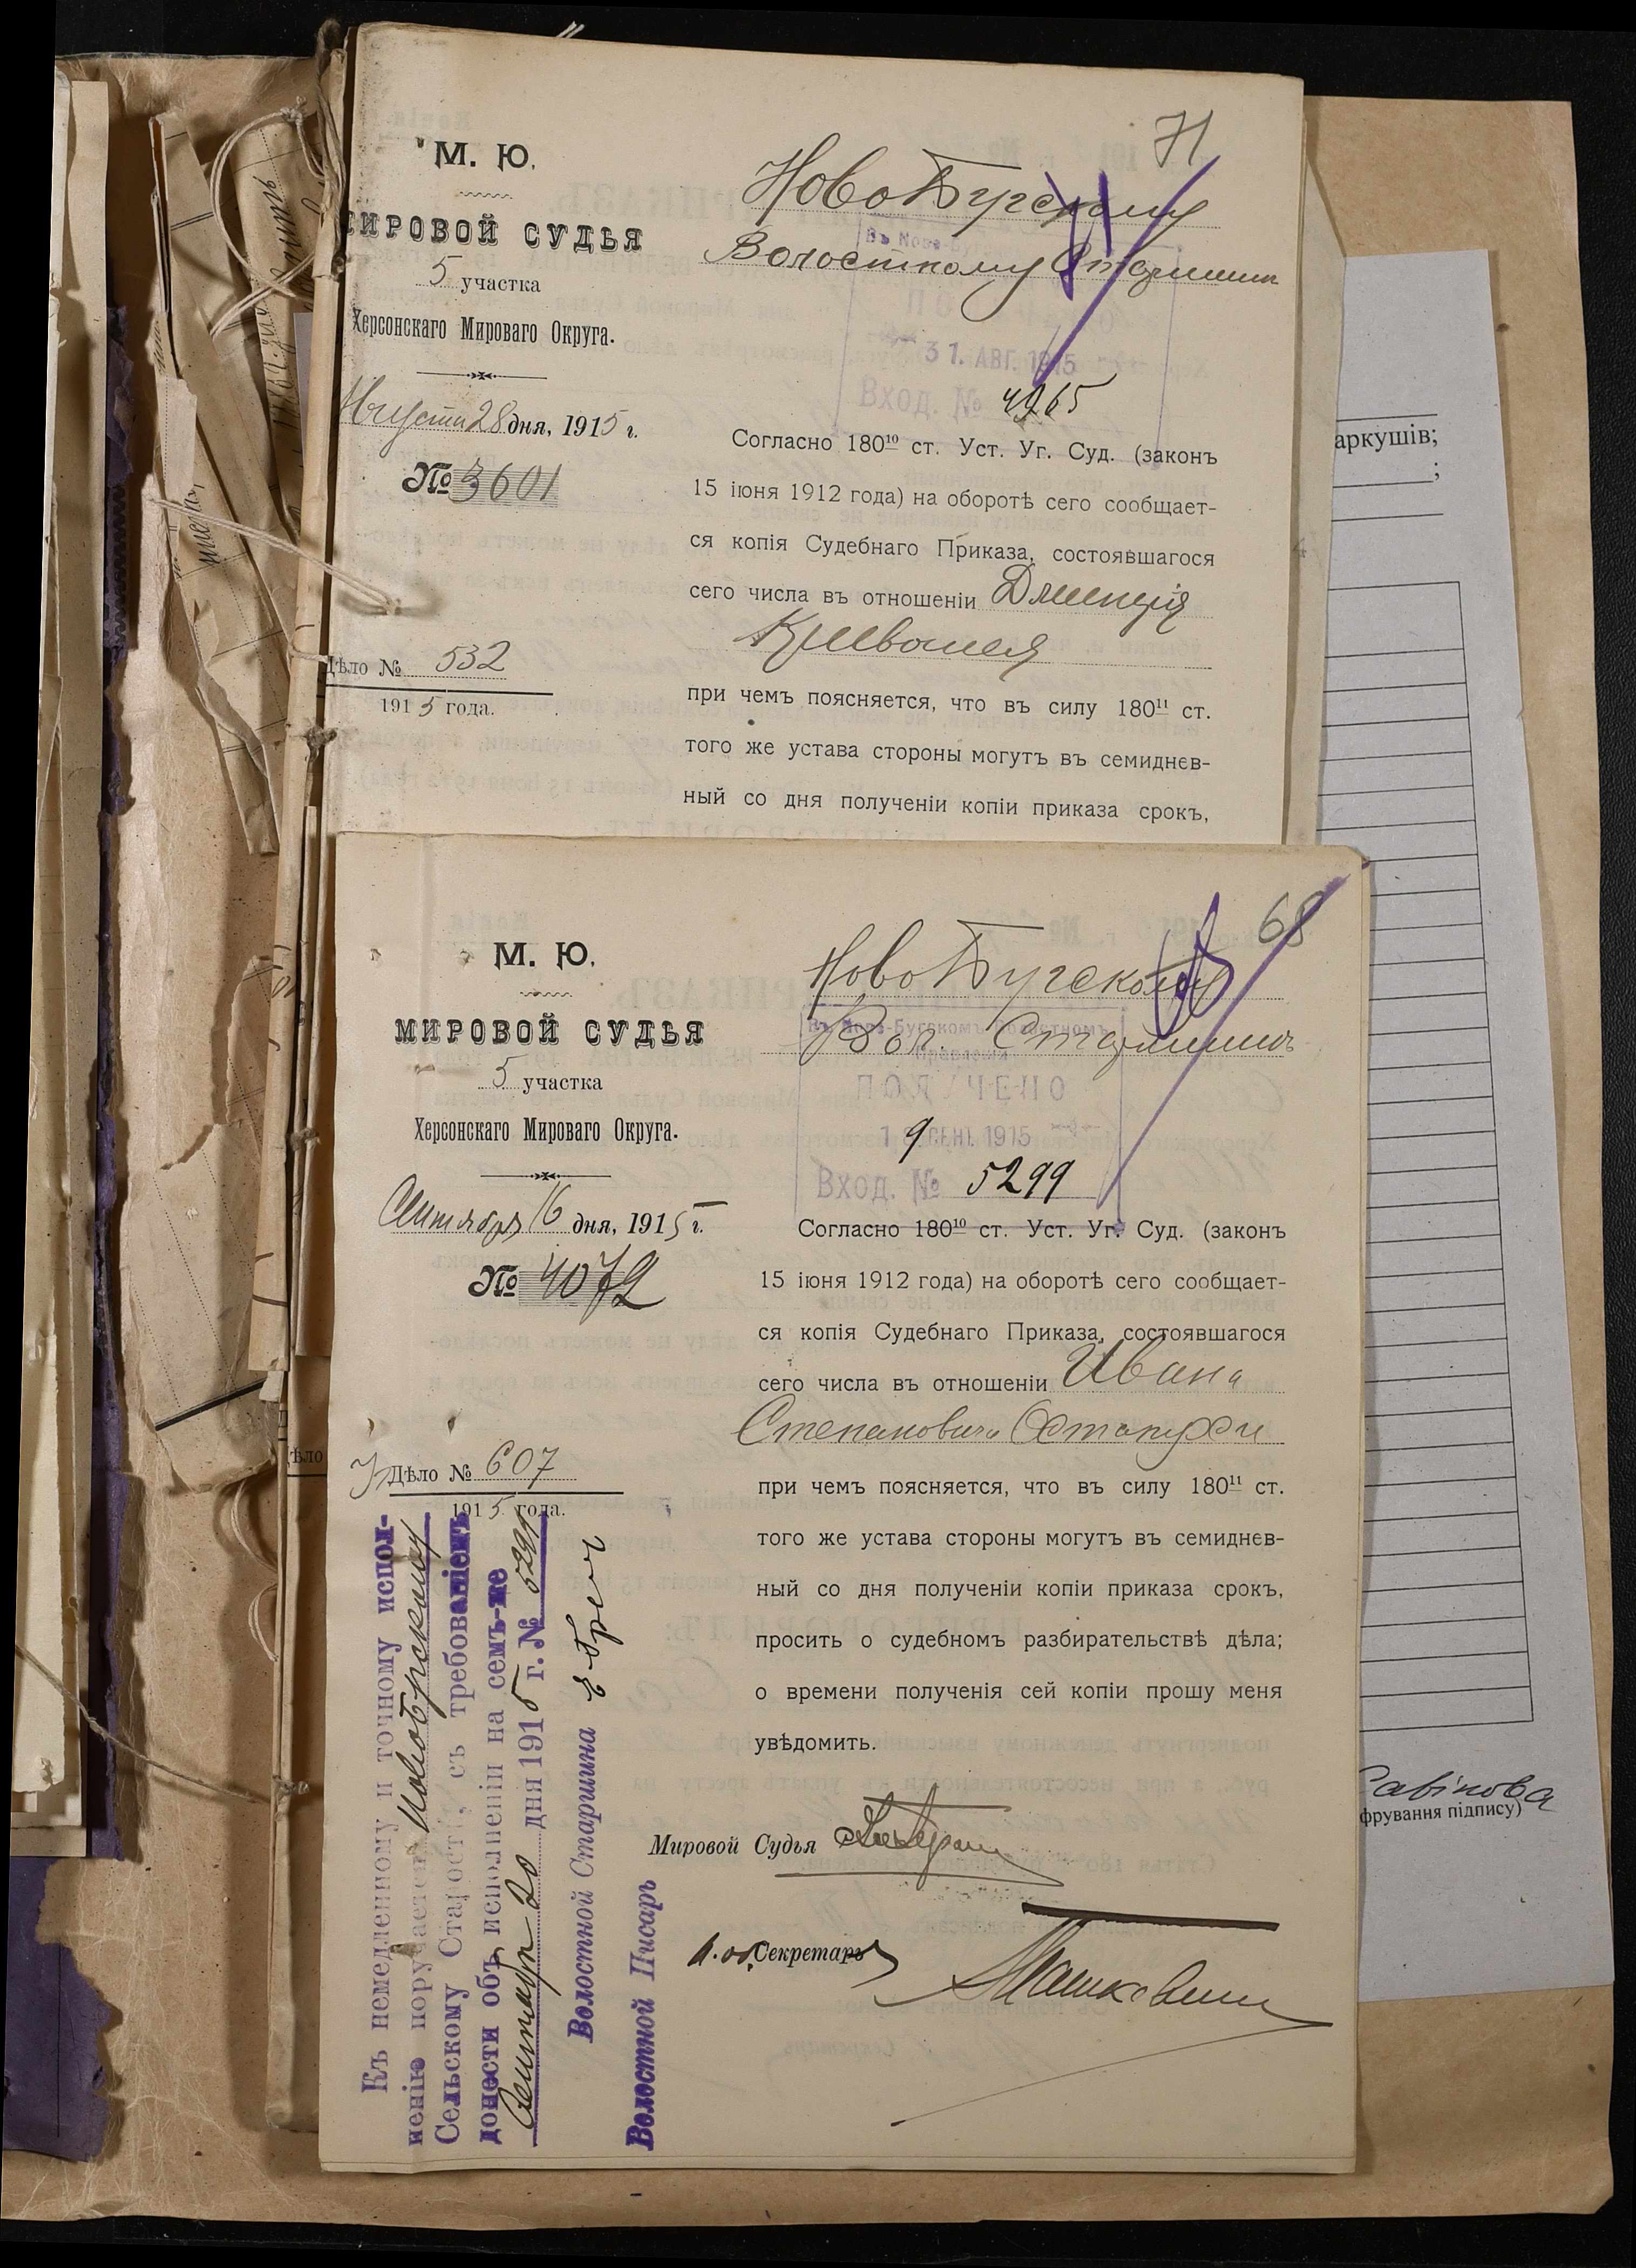 71
М. Ю.
МИРОВОЙ СУДЬЯ
5 участка
Херсонскаго Мироваго Округа.
Августа 28 дня, 1915 г.
№ 3601
Дѣло № 532
1915 года.
НовоБугскому
Волостному Старшинѣ
Въ Ново-Бу
31. АВГ. 1915
Вход. № 4965
Согласно 180¹⁰ ст. Уст. Уг. Суд. (законъ
15 іюня 1912 года) на оборотѣ сего сообщает-
ся копія Судебнаго Приказа, состоявшагося
сего числа въ отношеніи Дмитрія
Кривошея
при чемъ поясняется, что въ силу 180¹¹ ст.
того же устава стороны могутъ въ семиднев-
ный со дня полученіи копіи приказа срокъ,
68
М. Ю.
МИРОВОЙ СУДЬЯ
5 участка
Херсонскаго Мироваго Округа.
Сентября 16 дня, 1915 г.
№ 4072
Дѣло № 607
1915 года.
НовоБугскому
Вол. Старшинѣ
Въ Ново-Бугскомъ Волостномъ
Правленіи
ПОЛУЧЕНО
19 СЕНТ. 1915
Вход. № 5299
Согласно 180¹⁰ ст. Уст. Уг. Суд. (законъ
15 іюня 1912 года) на оборотѣ сего сообщает-
ся копія Судебнаго Приказа, состоявшагося
сего числа въ отношеніи Ивана
Степановича Остапухи
при чемъ поясняется, что въ силу 180¹¹ ст.
того же устава стороны могутъ въ семиднев-
ный со дня полученіи копіи приказа срокъ,
просить о судебномъ разбирательствѣ дѣла;
о времени полученія сей копіи прошу меня
увѣдомить.
Мировой Судья
И. об. Секретаря
Машкевич
Къ немедленному и точному испол-
ненію поручается Новобугскому
Сельскому Старостѣ, съ требованіемъ
донести объ исполненіи на семъ-же
Сентября 20 дня 1915 г. № 5299
Волостной Старшина
Волостной Писарь
ѣло
аркушів;
;
Савінова
фрування підпису)